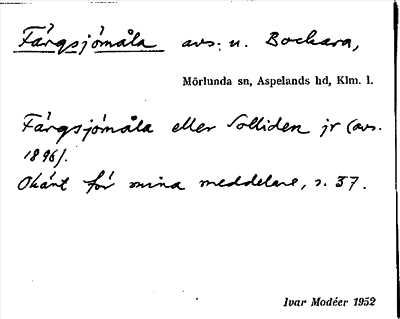 Färgsjömåla avs. u. Bockara,
Mörlunda sn, Aspelands hd, Klm. l.
Färgsjömåla eller Solliden jr (avs.
1896).
Okänt för mina meddelare, s. 37.
Ivar Modéer 1952